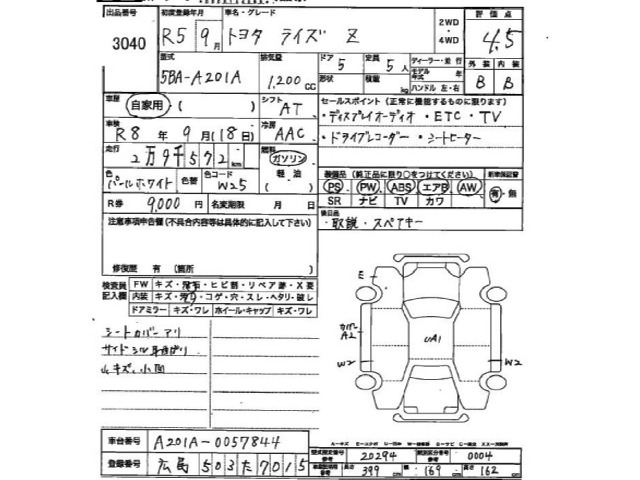 出品番号 初度登録年月 車名・グレード 2WD 評価点
3040 R5 9月 トヨタ ライズ Z ・4WD 4.5
型式 排気量 ドア 5 定員 5人 ディーラー・並行 外装 内装
5BA-A201A 1,200cc 形状 積載量 kg モデル年式 B B
ハンドル 左・右
車歴 自家用・( ) シフト AT セールスポイント(正常に機能するものに限ります)
・ディスプレイオーディオ ・ETC ・TV
車検 R8年 9月(18日) 冷房 AAC ・ドライブレコーダー ・シートヒーター
走行 2万9千572km 燃料 ガソリン
軽油 ( )
装備品(純正品に限り○をつけてください) 新車保証書
色 パールホワイト 色替 色コード W25 PS PW ABS エアB AW 有・無
SR ナビ TV カワ
R券 9,000円 名変期限 月 日 後日品
注意事項申告欄(不具合内容等は具体的に記入して下さい) ・取説・スペアキー
修復歴 有(箇所 )
検査員記入欄 FW キズ・飛石・ヒビ割・リペア跡・X要
内装 キズ・汚・コゲ・穴・スレ・ヘタリ・破レ
ドアミラー キズ・ワレ ホイール・キャップ キズ・ワレ
シートカバーアリ
サイドシル
小キズ、小凹
E
カバー A2
UA1
W2 W2
車台番号 A201A-0057844
登録番号 広島 503 た 7015
型式指定番号 参考 20294 類別区分番号 参考 0004
車輌型別寸法 参考 長さ 399 cm 幅 169 cm 高さ 162 cm